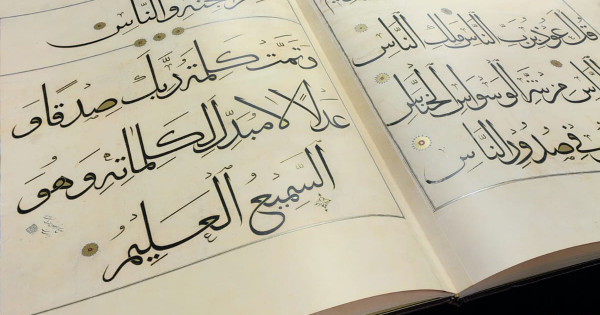 قل اعوذ برب الناس ملك الناس
الناس من شر الوسواس الخناس
في صدور الناس
الجنة والناس
وتمت كلمة ربك صدقا و
عدلا لا مبدل لكلماته وهو
السميع العليم